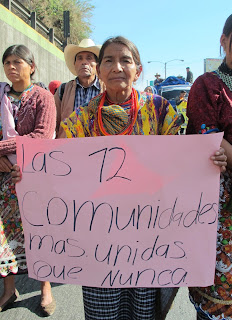 Las 12
Comunidades
mas unidas
que Nunca